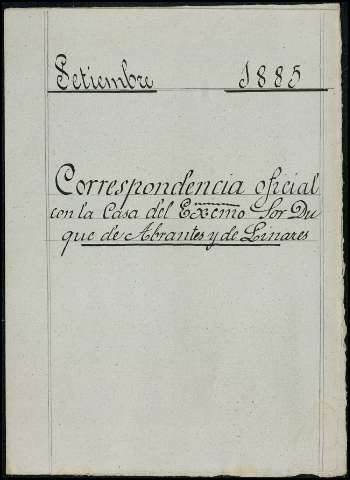 Setiembre 1885
Correspondencia oficial
con la Casa del Excmo Sor Du
que de Abrantes y de Linares